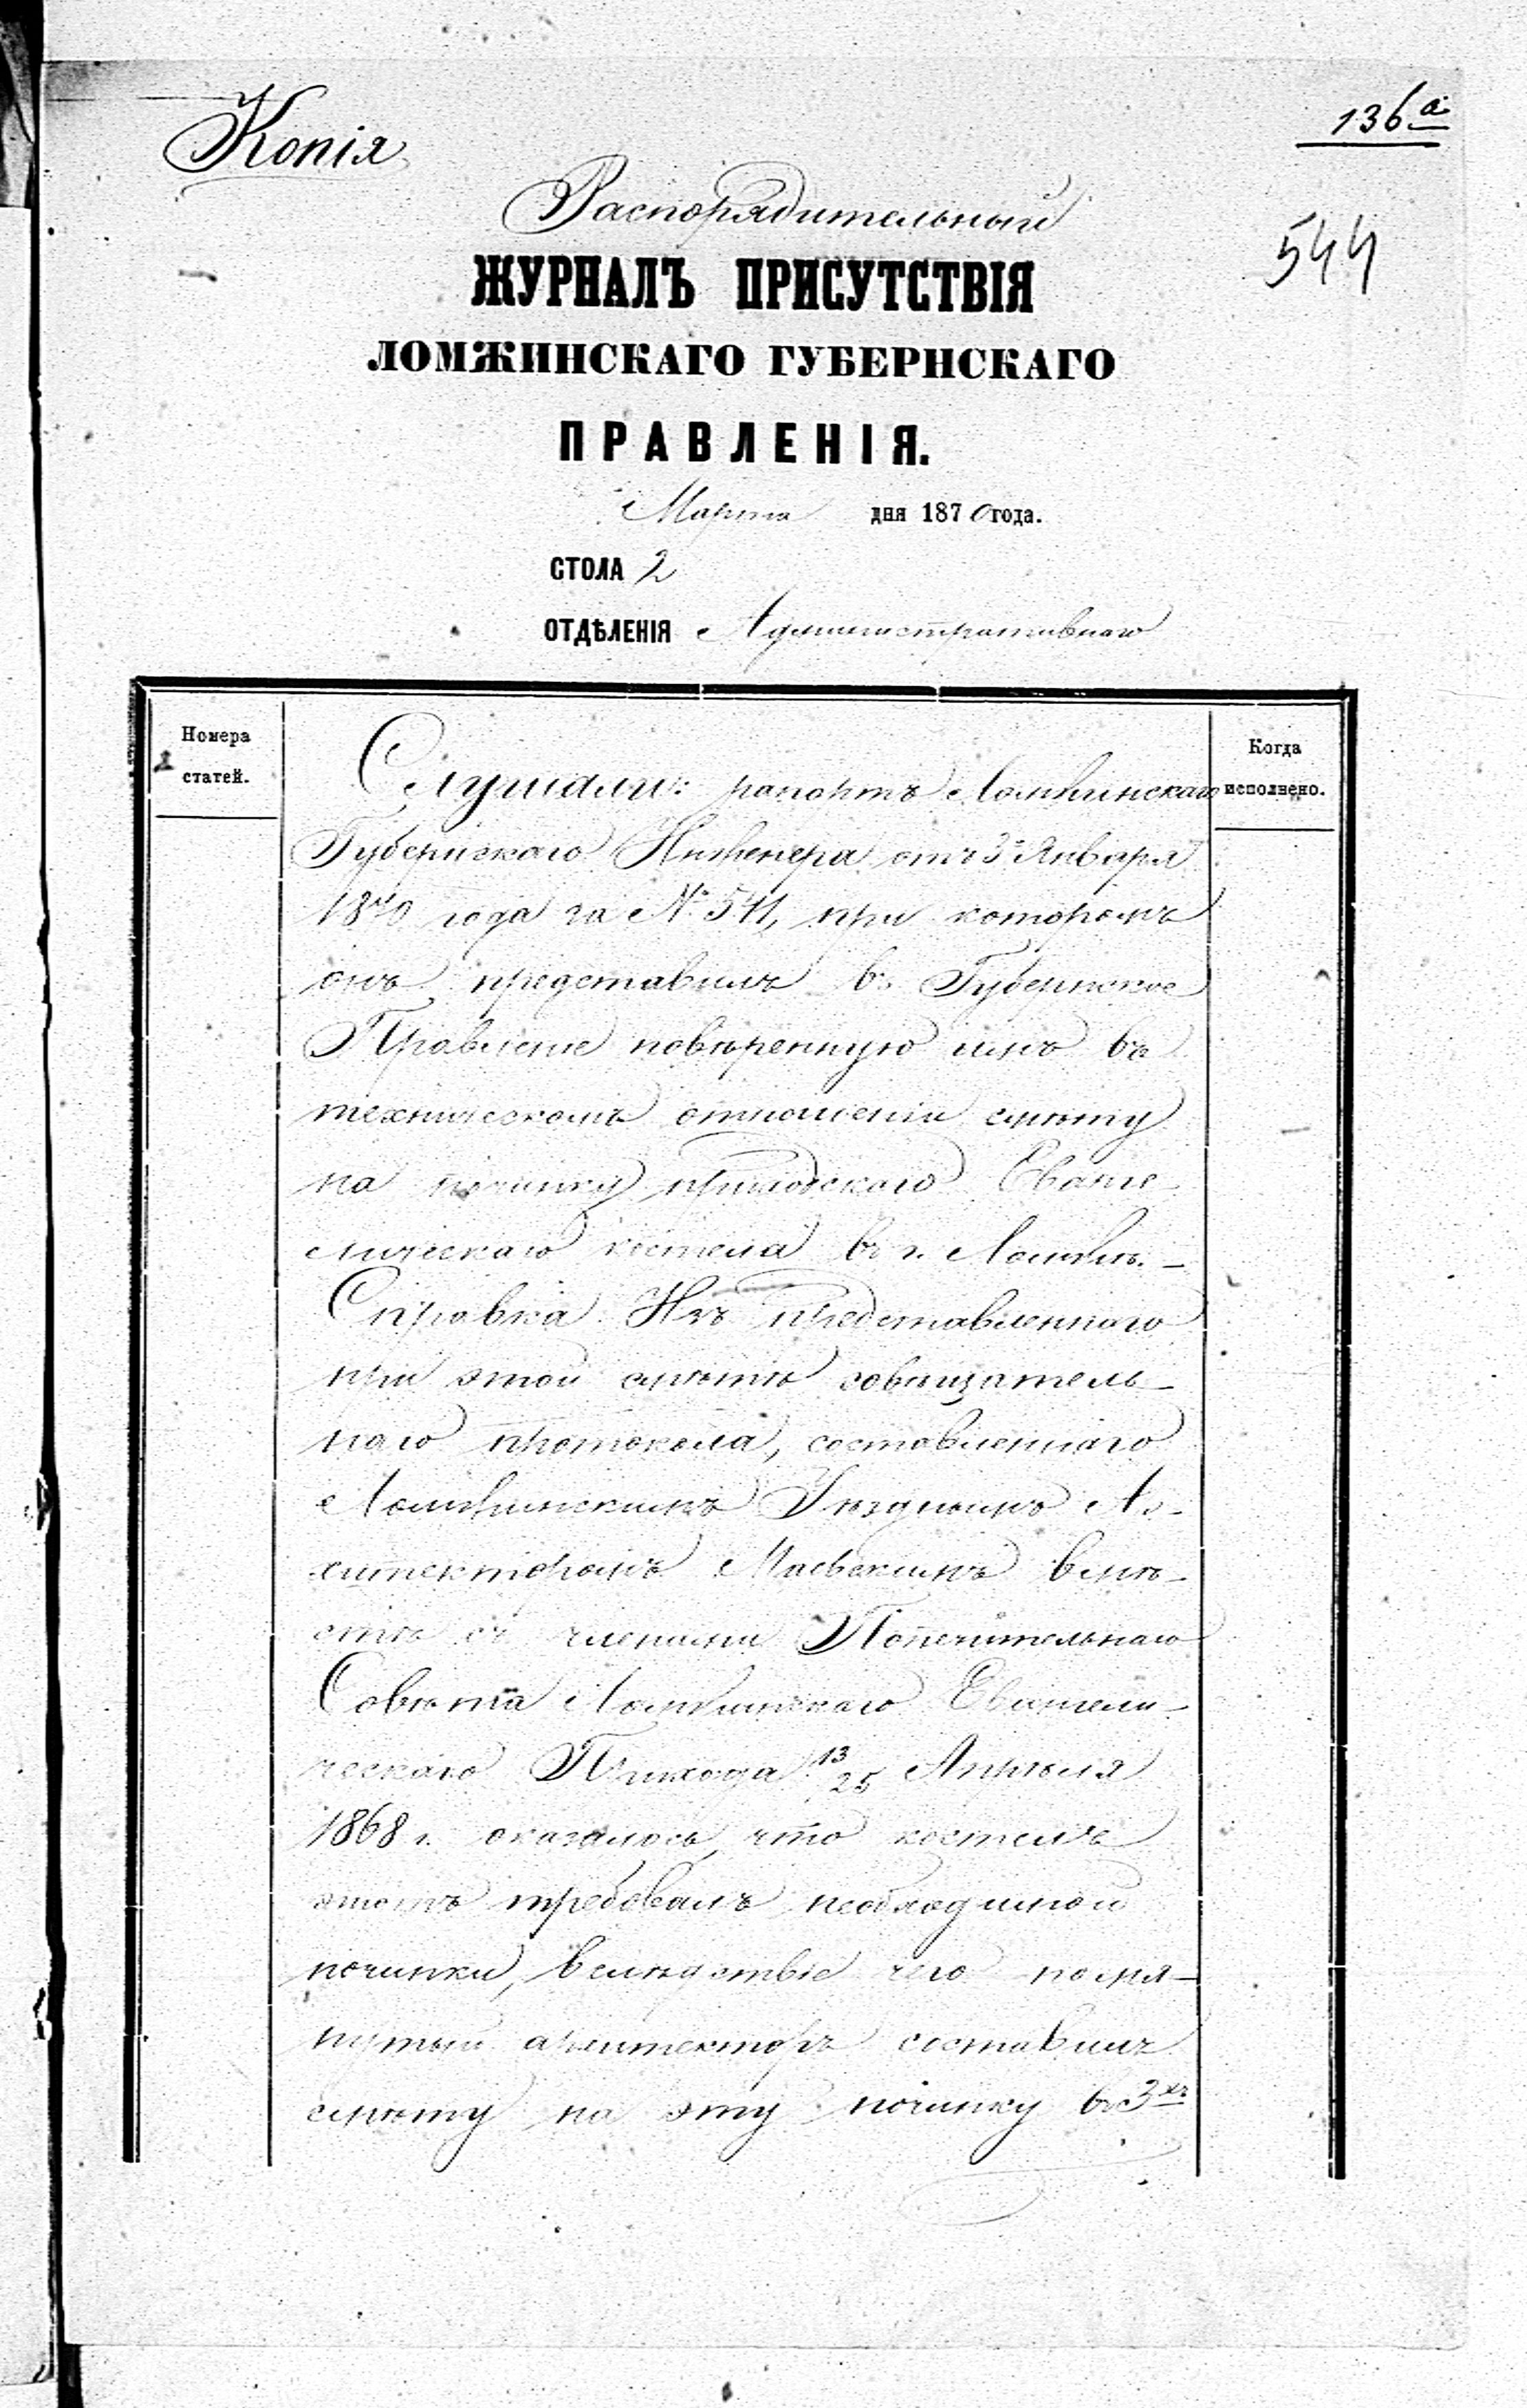 Копія
136 а
Распорядительный
544
ЖУРНАЛЪ ПРИСУТСТВІЯ
ЛОМЖИНСКАГО ГУБЕРНСКАГО
ПРАВЛЕНІЯ.
Марта дня 1870 года.
СТОЛА 2
ОТДѢЛЕНІЯ Административнаго
Номера
статей.
Когда
исполнено.
Слушали: рапортъ Ломжинскаго
Губернскаго Инженера отъ 3 Января
1870 года за № 541, при которомъ
онъ представилъ въ Губернское
Правленіе повѣренную имъ въ
техническомъ отношеніи смѣту
на починку приходскаго Еванге-
лическаго костела въ г. Ломжѣ. -
Справка Изъ представленнаго
при этой смѣтѣ совѣщатель-
наго протокола, составленнаго
Ломжинскимъ Уѣзднымъ Ар-
хитекторомъ вмѣ-
стѣ съ членами Попечительнаго
Совѣта Ломжинскаго Евангели-
ческаго Прихода 13/25 Апрѣля
1868 г. оказалось, что костелъ
этотъ требовалъ необходимой
починки, вслѣдствіе чего помя-
нутый архитекторъ составилъ
смѣту на эту починку въ 3хъ